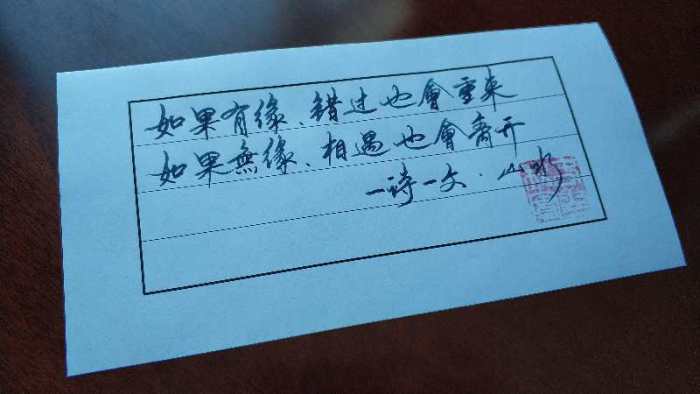 如果有缘、错过也會重来
如果無缘、相遇也會离开
一诗一文·山水